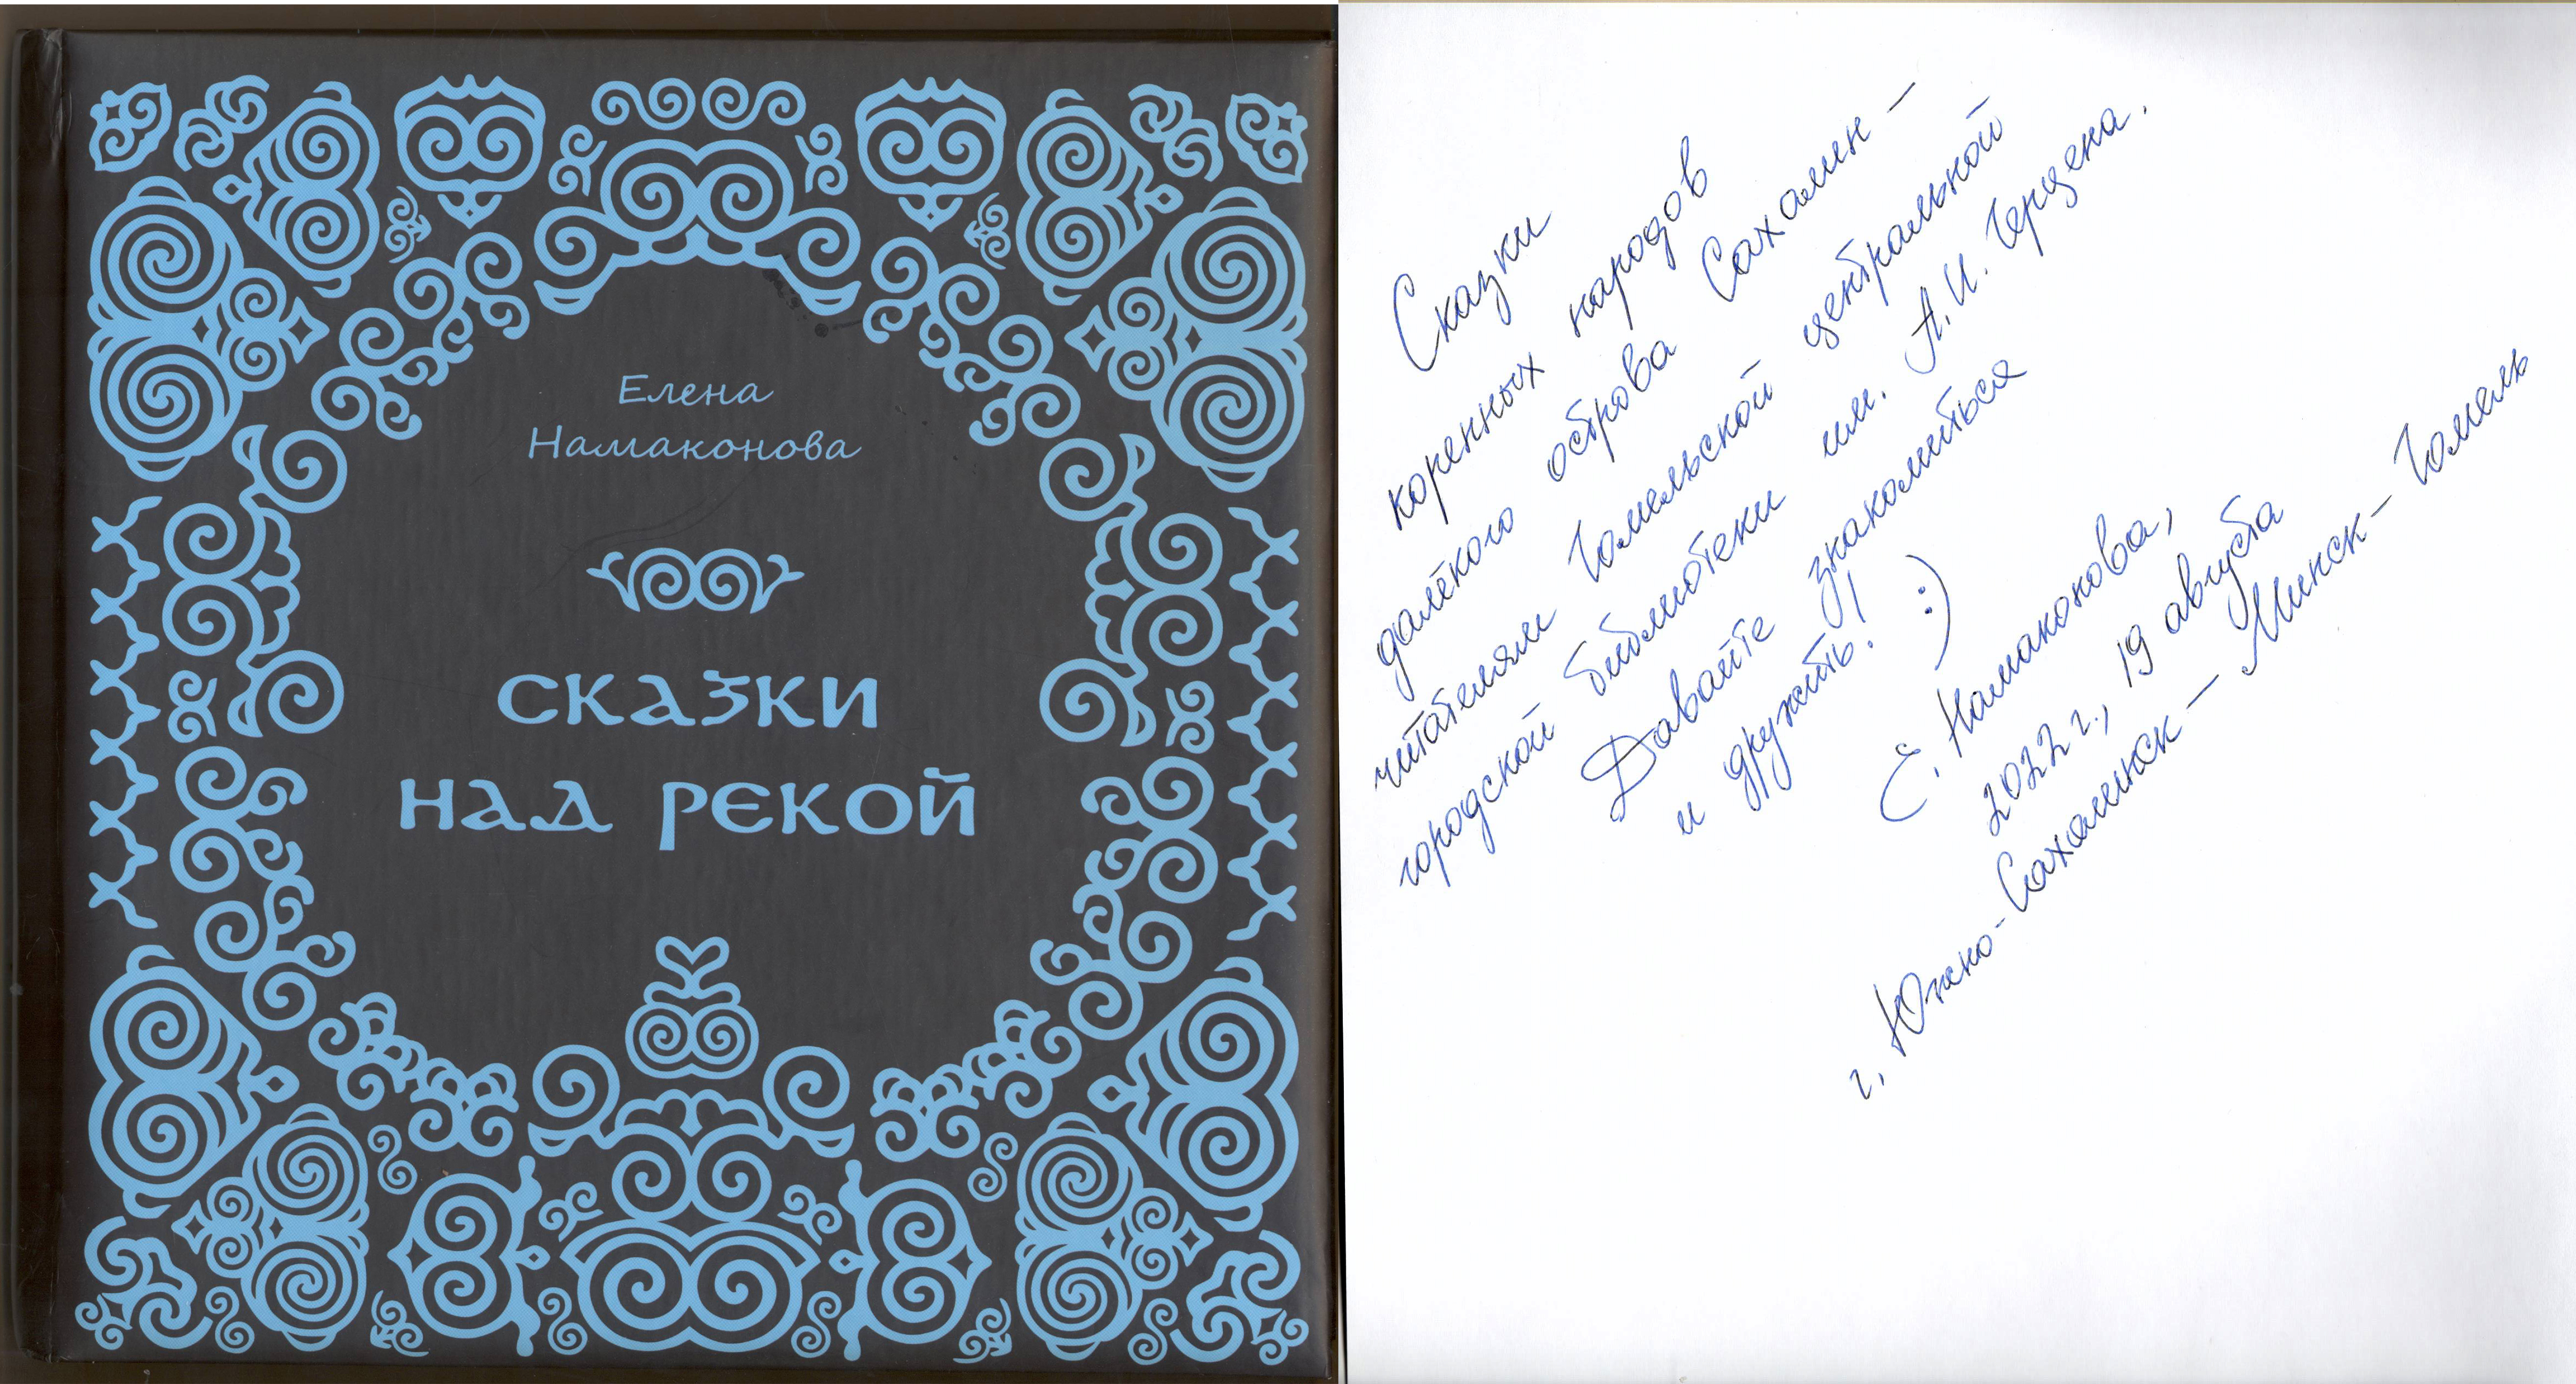 Елена
Намаконова
СКАЗКИ
НАД РЕКОЙ
Сказки
коренных народов
далёкого острова Сахалин –
читателям Гомельской центральной
городской библиотеки им. А.И. Герцена.
Давайте знакомиться
и дружить! :)
Е. Намаконова,
2022 г., 19 августа
г. Южно-Сахалинск – Минск – Гомель